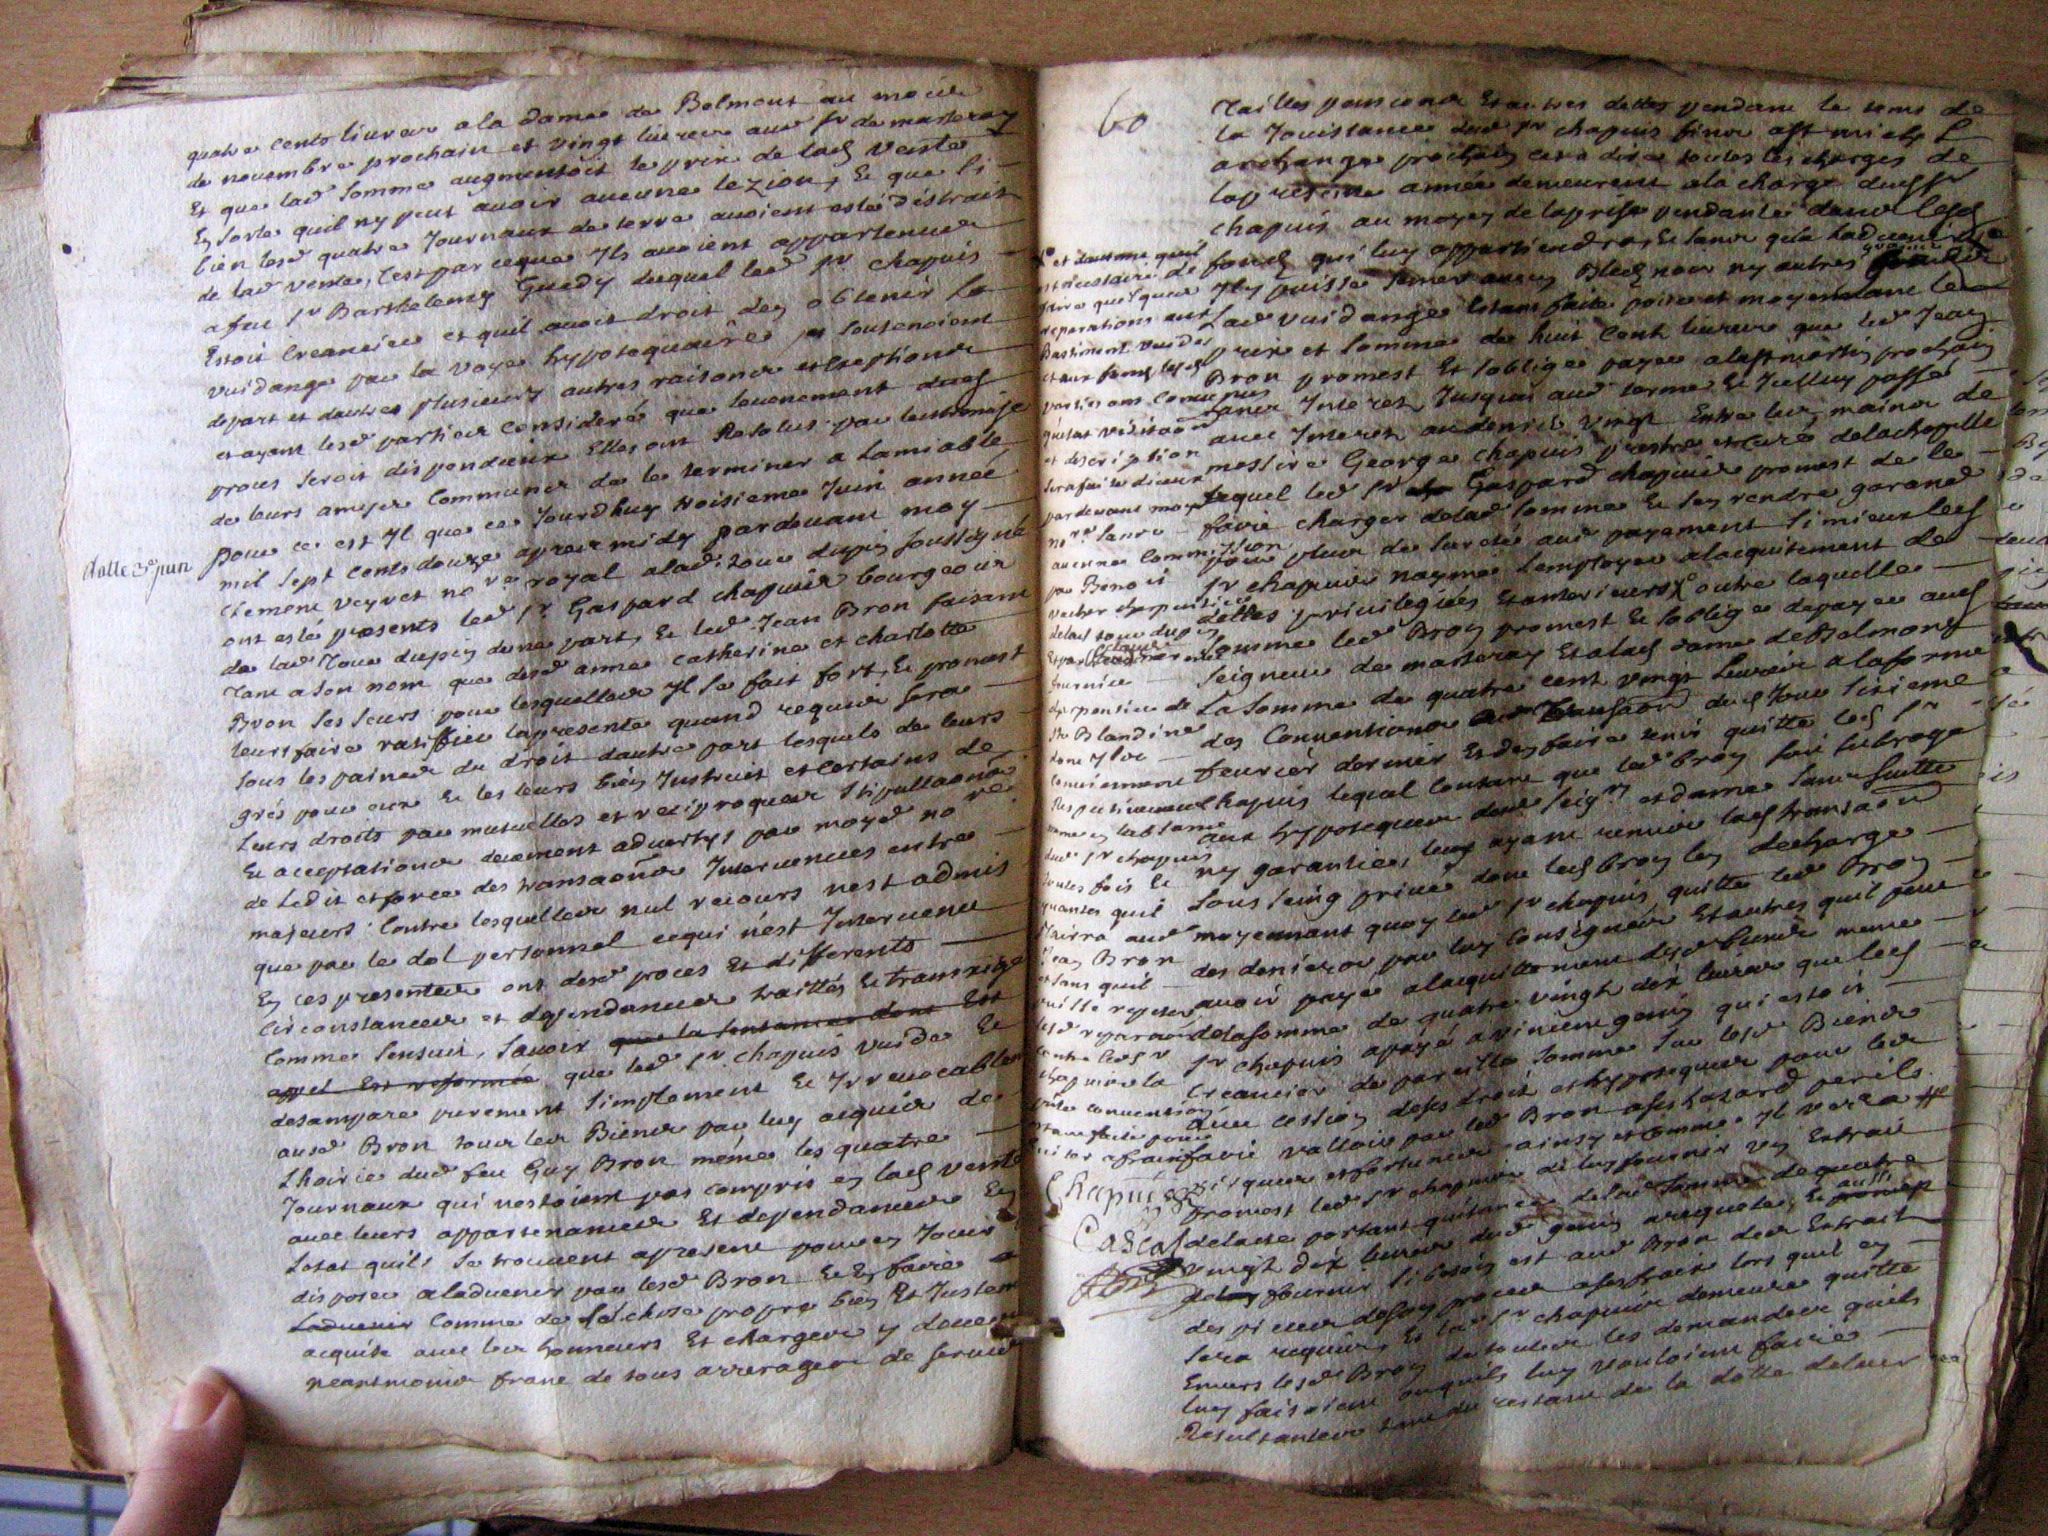 quatre cents livres a la dame de Belmont au mois
de novembre prochain et vingt livres aud sr de masteray
Et que lad somme augmentoit le prix de lad vente
En sorte quil ny peut avoir aucune lezion, Et que si
bien lesd quatre Journaux de terre avoient esté distraits
de lad vente, Cest par ceque Ils avoient appartenus
a feu sr Barthelemy Guedy duquel led sr chapuis
Estoit Creancier et quil avoit droit den obtenir la
vuidange par la voye hypotequaire, se soutenoient
depart et dautres plusieurs autres raisons et Exeptions
et ayant lesd parties consideré que levenement dud
proces seroit dispendieux Elles ont Resolus par lentremise
de leurs amys Communs de le terminer a lamiable
dalte 3e juin
Pour ce est Il que ce Jourdhuy troisieme Juin année
mil sept cents douze apres midy pardevant moy
Clement veyret nore royal a lad Tour dupin soussigné
ont esté presents led sr Gaspard chapuis bourgeois
de lad Tour dupin dune part, Et led Jean Bron faisant
tant a son nom que desd anne catherine et charlotte
Bron ses seurs pour lesquelles Il se fait fort, Et promest
leurs faire ratiffier la presente quand requis sera
sous les paines du droit dautre part lesquels de leurs
grés pour eux Et les leurs bien Instruit et certains de
leurs droits par mutuelles et reciproques stipullaõns
Et acceptations deuement advertys par moyd nore
de Ledit et force des transaõns Intervenues entre
majeurs Contre lesquelles nul recours nest admis
que par le dol personnel cequi nest Intervenu
En ces presentes ont desd proces Et differents
circonstances et dependances traittés Et transiges
Comme sensuit, savoir que la sentence dont Est
appel Est reformée que led sr chapuis vuide Et
desampare purement simplement Et Irrevocablem
ausd Bron tous les Biens par luy acquis de
Lhoirie dud feu Guy Bron même les quatre
Journaux qui nestoient pas compris en lad vente
avec leurs appartenances Et dependances En
Letat quils se trouvent apresent pour en Jouir
disposer aladvenir par lesd Bron Et En faire
Ladvenir Comme de La chose propre bien Et Justem
acquise avec les honneurs Et charges y deues
neantmoins franc de tous arrerages de servis
60
Tailles pensions Et autres dettes pendant le tems de
la Jouissance dud sr chapuis finis a st michel L
archange prochain cesta dire toutes les charges de
la presente année demeurent a la charge dud sr
chapuis au moyen de la prise pendante dans lesd
fonds qui luy appartiendra, Et sans qua Ladvenir
Il y puisse semer aucun Bleds noir ny autres grains
Lad vuidange Estant faite pour et moyennant le
prix et somme de huit cent livres que led Jean
Bron promest Et soblige payer a la st martin prochain
sans Interest Jusquau aud terme Et Icelluy passé
avec Interest au denier vingt Entre les mains de
messire George chapuis prestre et curé de la chapelle
lequel led sr Gaspard chapuis promest de le
faire charger delad somme Et sen rendre garand
pour plus de sureté aud payement si mieux led
sr chapuis nayme Lemployer alacquitement de
dettes privilegiées Et anterieures outre laquelle
somme led Bron promest Et soblige de payer aud
seigneur de masteray Et alad dame de Belmont
La somme de quatre cent vingt Livres a la forme
des Conventions du Jour sixieme
fevrier dernier Et den faire tenir quitte led sr
Chapuis lequel consent que led Bron soit subrogé
aux hypoteques dud seigr et dame sans suitte
ny garanties, leur ayant remis lad transaõn
sous seing privé dont led Bron len decharge
moyennant quoy led sr chapuis quitte led Bron
des deniers par luy consignés Et autres quil peut
avoir payé alacquittement desd biens meme
dela somme de quatre vingt dix livres que led
sr chapuis a payé a vincent genin qui estoit
Creancier de pareille somme sur lesd Biens
avec cession deses droit et hypoteques pour les
faire valloir par led Bron a ses hazard perils
risques et fortunes ainsy et comme Il verra
promest led sr chapuis de luy fournir un Extrait
delacte portant quitance delad somme de quatre
vingt dix livres dud genin a requeste, Et aussi
de fournir si besoin est aud Bron des Extrait
des pieces desd proces a ses frais lors quil en
sera requis, Et led sr chapuis demeure quitte
Envers lesd Bron de toutes les demandes quils
luy faisoient ou quils luy vouloient faire
Resultantes tant du restant de la dotte deleur
et dautant quil
est necessaire de
faire quelques
reparations aux
Bastiment vuidés
et aux fonds lesd
parties ont Convenus
questat visitaõn
et description
sera faite dIceux
pardevant moyd
nore sans
aucune Commission
par Benoit
vacher charpentier
delad tour dupin
Et par
Tournier
charpentier de
ste Blandine
dont Ils
conviennent
respectivement
meme en labsence
dud sr chapuis
toutes fois Et
quantes quil
plairra aud
Jean Bron
et sans quil
puisse repeter
lesd reparaõns
contre led sr
chapuis la
pnte convention
estant faite pour
eviter a frais
Chapuis
Pascal